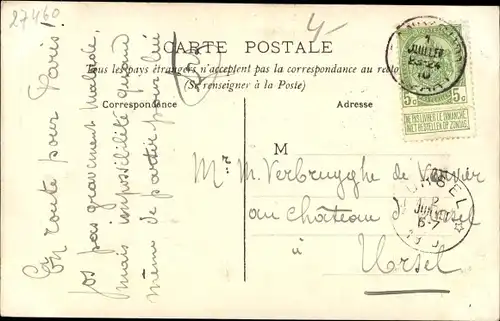 27460
4-
CARTE POSTALE
Tous les pays étrangers n'acceptent pas la correspondance au recto
(Se renseigner à la Poste)
Correspondance
Adresse
En route pour Paris!
pas gravement malade,
mais impossibilité quand
même de partir pour lui
M
Mr M. Verbrugghe de
au château d'Ursel
à
Ursel
1
JUILLET
23-24
10
5c 5c
NE PAS LIVRER LE DIMANCHE
NIET BESTELLEN OP ZONDAG
URSEL
2
JUILLET
6-7